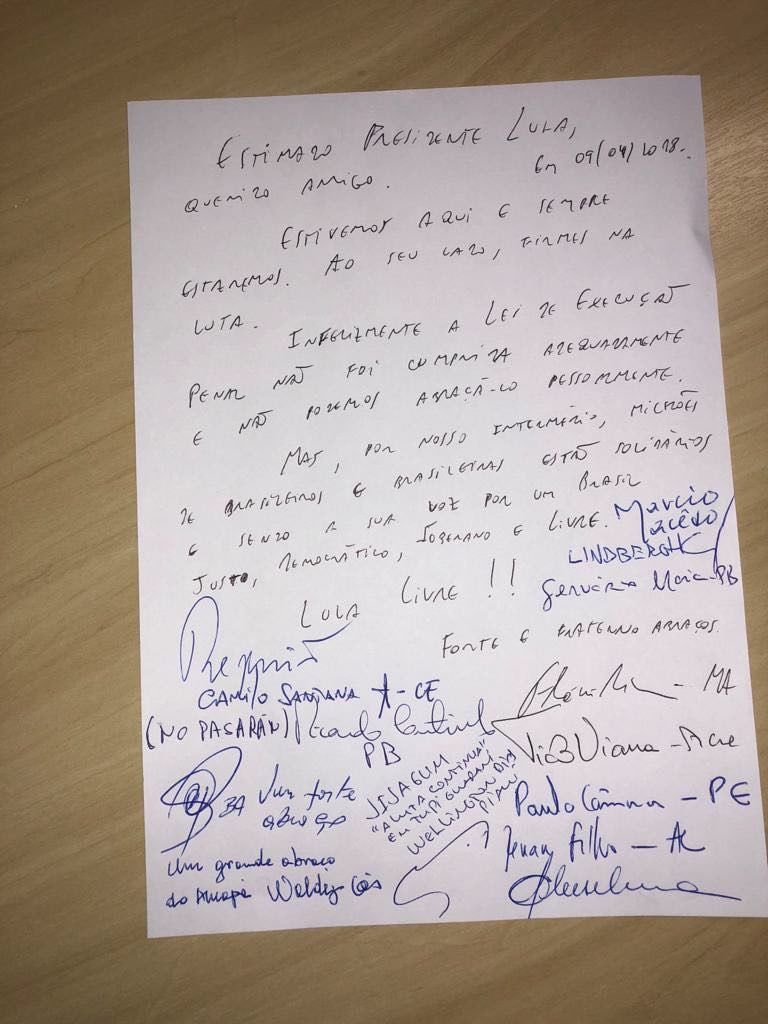 ESTIMADO PRESIDENTE LULA,
Em 09/04/2018.
QUERIDO AMIGO.
ESTIVEMOS AQUI E SEMPRE
ESTAREMOS. AO SEU LADO, FIRMES NA
LUTA.
INFELIZMENTE A LEI DE EXECUÇÃO
PENAL NÃO FOI CUMPRIDA ADEQUADAMENTE
E NÃO PODEMOS ABRAÇÁ-LO PESSOALMENTE.
MAS, POR NOSSO INTERMÉDIO, MILHÕES
DE BRASILEIROS E BRASILEIRAS ESTÃO SOLIDÁRIOS
E SENDO A SUA VOZ POR UM BRASIL
JUSTO, DEMOCRÁTICO, SOBERANO E LIVRE.
Marcio
Macêdo
LINDBERGH
Gervásio Maia-PB
LULA LIVRE !!
FORTE E FRATERNO ABRAÇOS.
Requião
CAMILO SANTANA - CE
- MA
(NO PASARÁN) Ricardo Coutinho
PB
Tião Viana - Acre
JIJAGUM
"A LUTA CONTINUA"
EM TUPI GUARANI
WELLINGTON DIAS
PIAUÍ
BA Um forte
abraço
Paulo Câmara - PE
Renan Filho - AL
Um grande abraço
do Amapá Waldez Góes